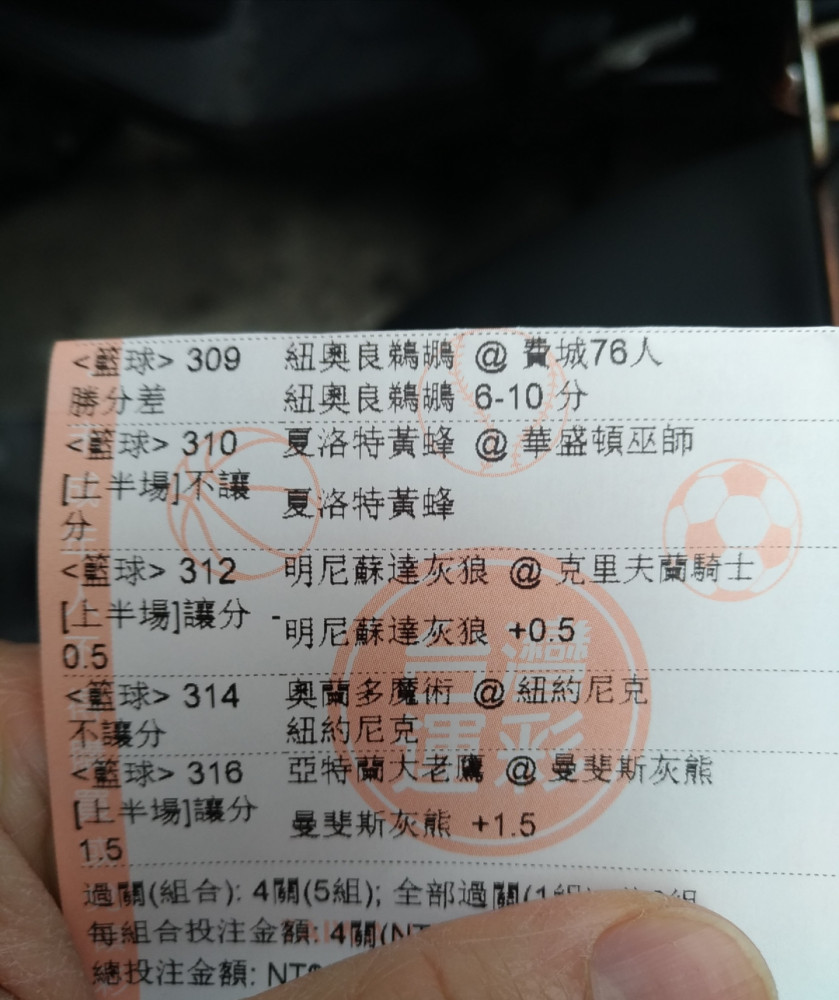 <籃球> 309 紐奧良鵜鶘 @ 費城76人
勝分差 紐奧良鵜鶘 6-10 分
<籃球> 310 夏洛特黃蜂 @ 華盛頓巫師
[上半場]不讓
分 夏洛特黃蜂
<籃球> 312 明尼蘇達灰狼 @ 克里夫蘭騎士
[上半場]讓分 -
0.5 明尼蘇達灰狼 +0.5
<籃球> 314 奧蘭多魔術 @ 紐約尼克
不讓分 紐約尼克
<籃球> 316 亞特蘭大老鷹 @ 曼斐斯灰熊
[上半場]讓分
1.5 曼斐斯灰熊 +1.5
過關(組合): 4關(5組); 全部過關(1組)
每組合投注金額: 4關(NT
總投注金額: NT$
台灣
運彩